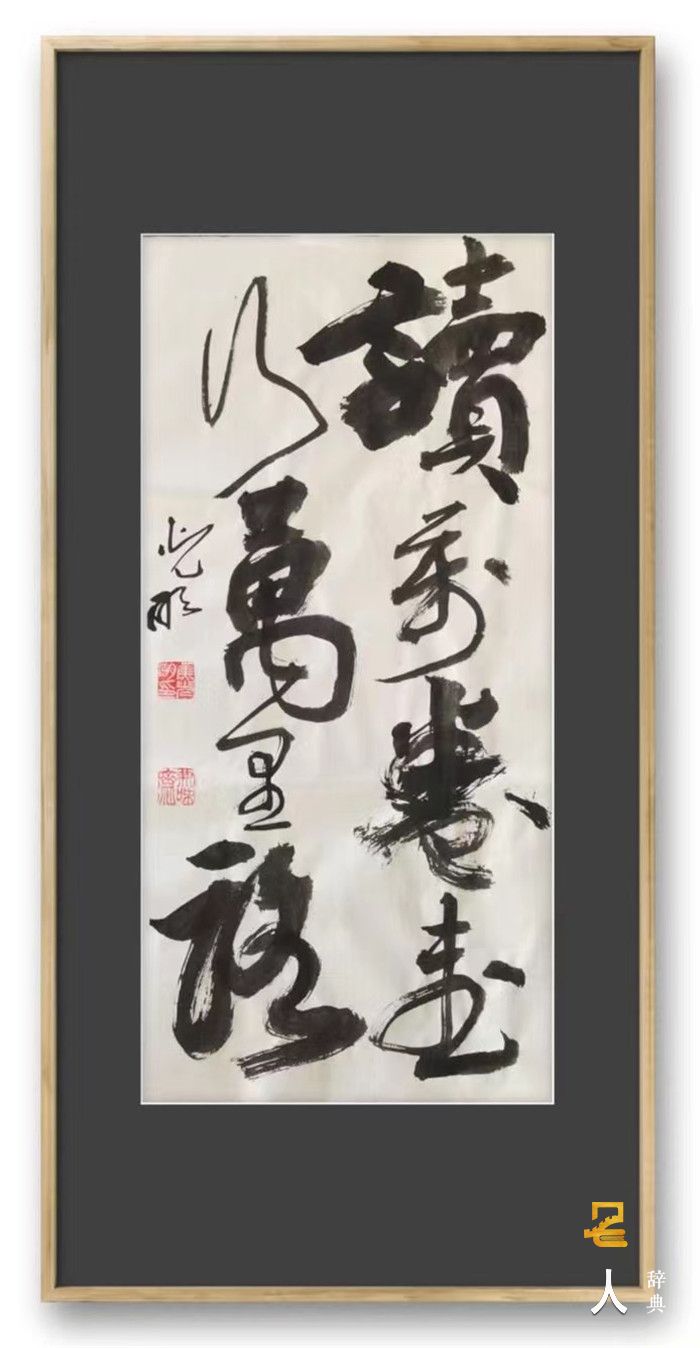 讀萬卷書
行萬里路
光明
名人
辞典